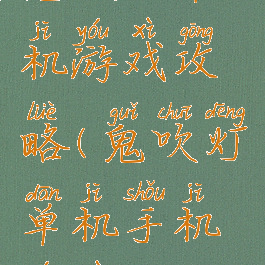 jī yóu xì gōng
机游戏攻
lüè guǐ chuī dēng
略(鬼吹灯
dān jī shǒu jī
单机手机